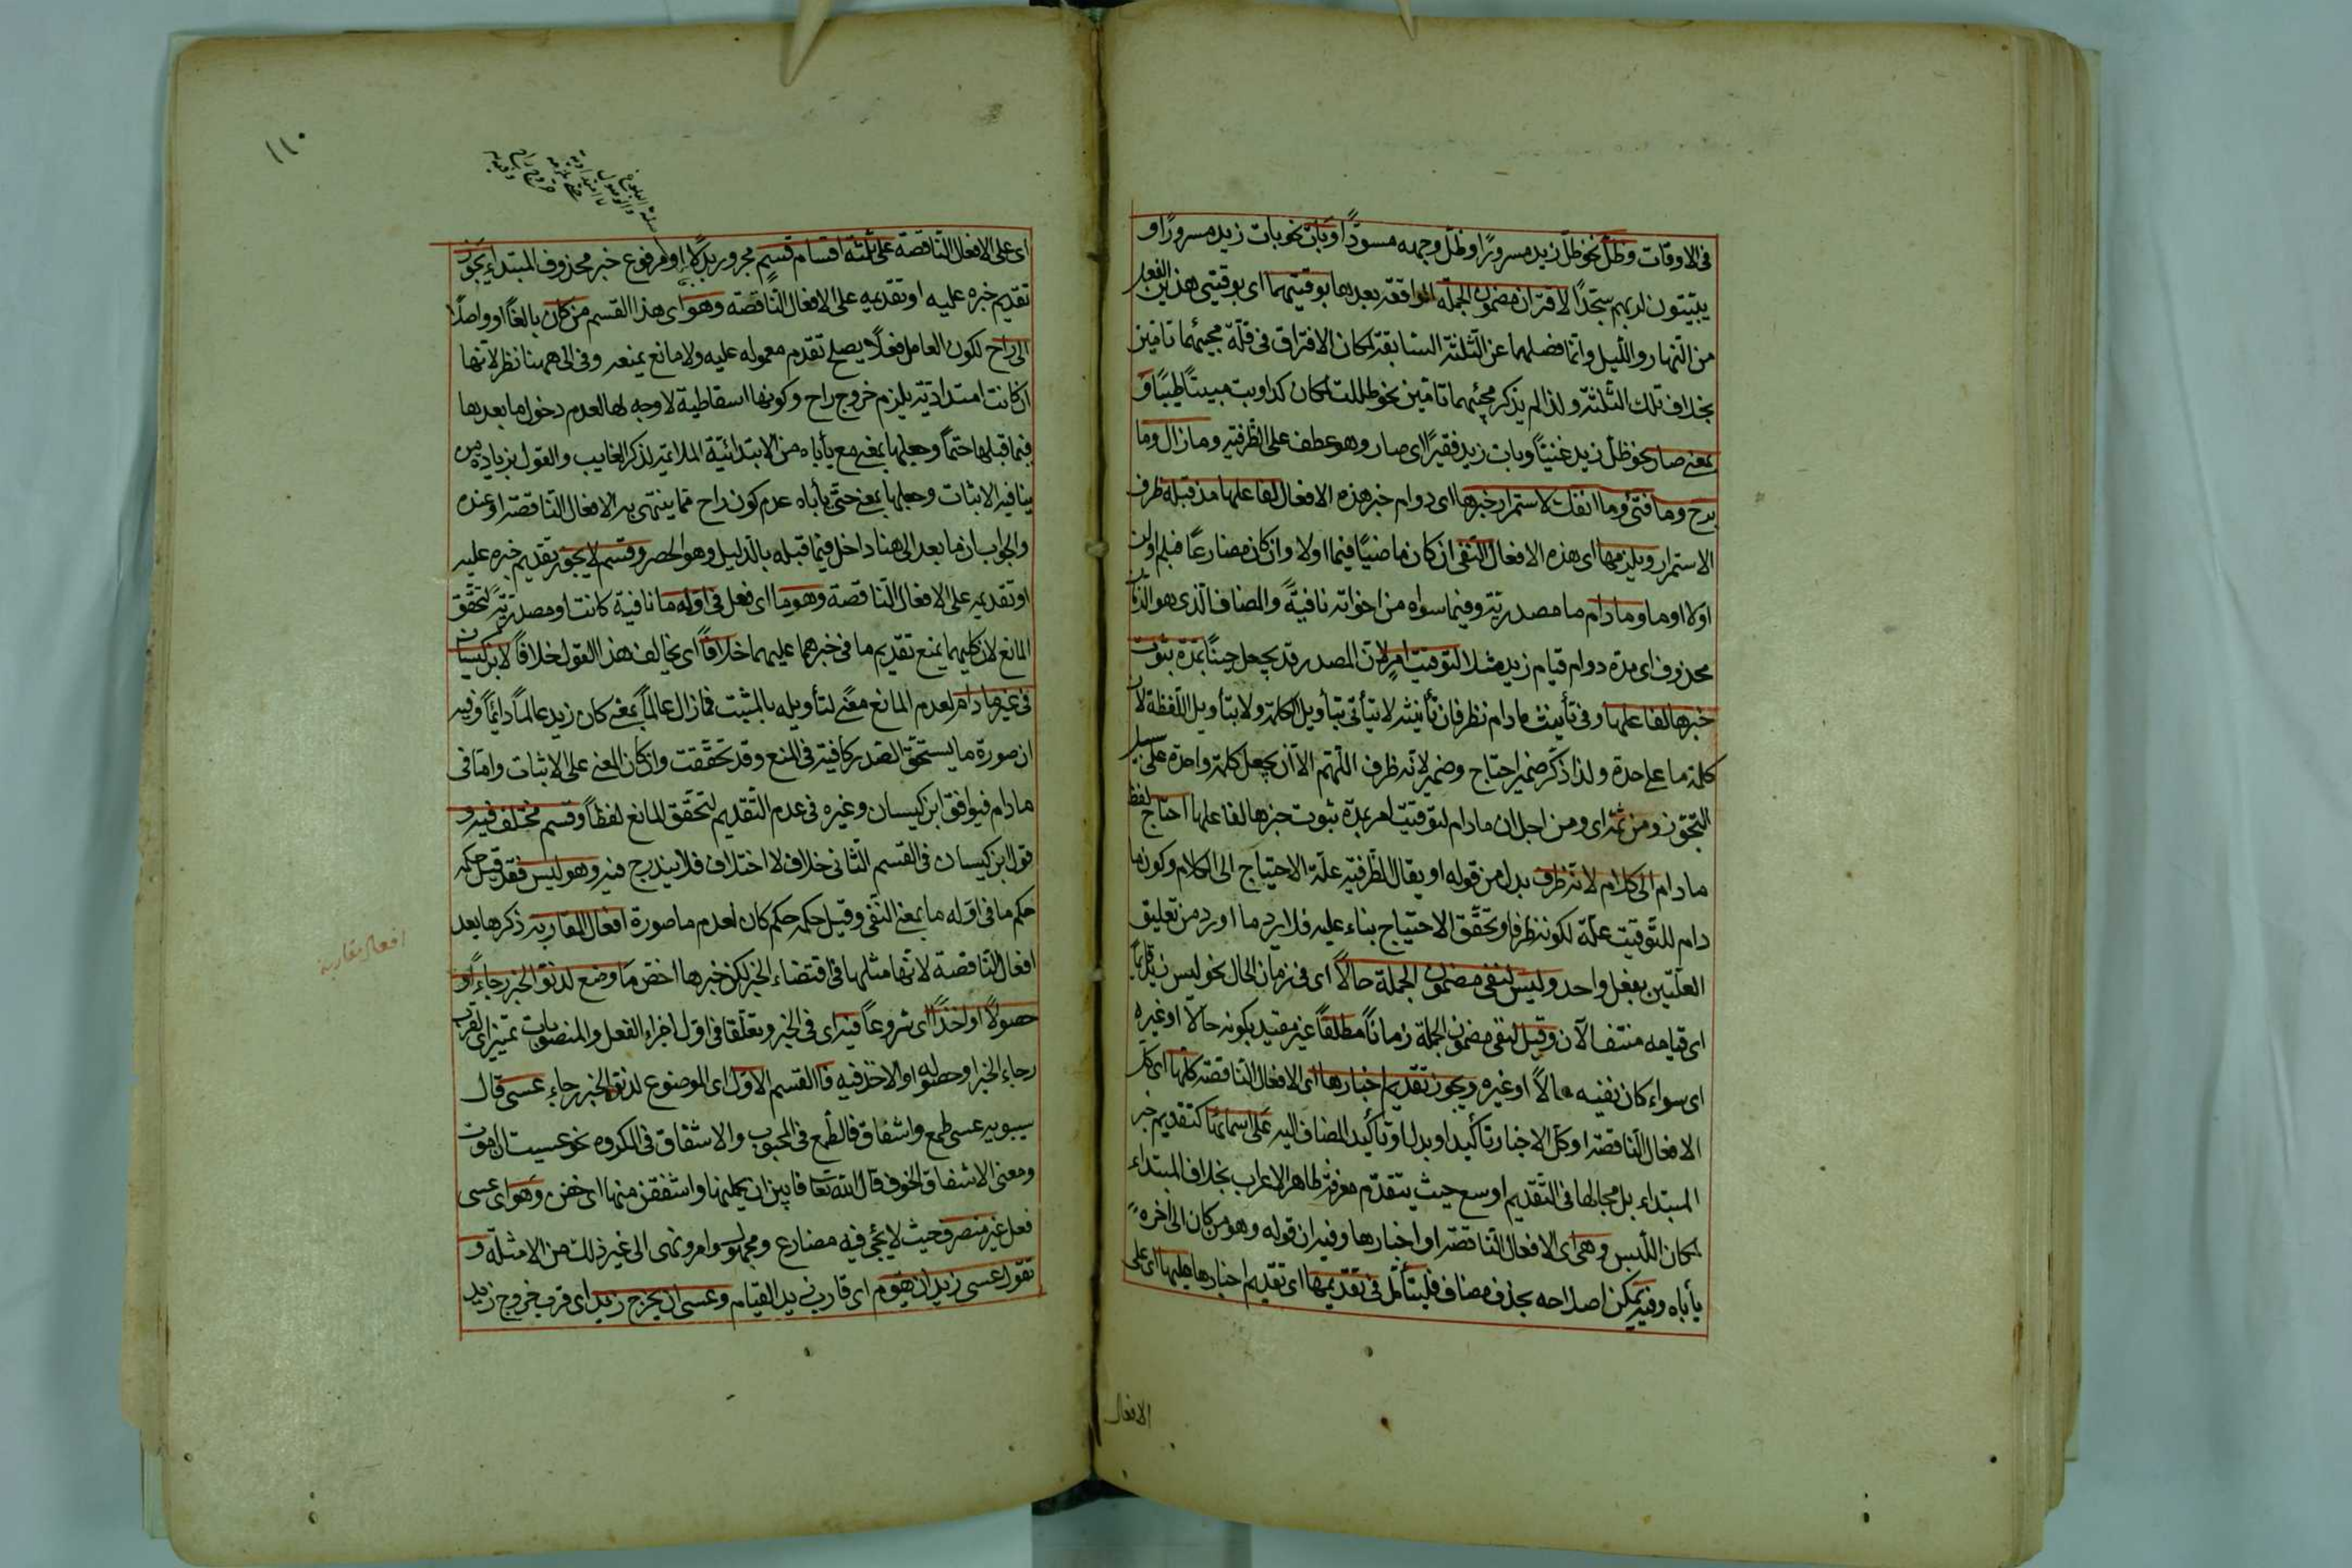 فى الاوقات وظلّ نحو ظلّ زيد مسرورًا وظلّ وجهه مسودًّا وبات نحو بات زيد مسرورًا و
يبيتون لربهم سجّدًا لاقتران مضمون الجملة الواقعة بعدها بوقتيهما اى بوقتى هذين الفعلين
من النهار والليل وانما فصلهما عن الثلثة السابقة لمكان الافتراق فى قلّة مجيئهما تامّين
بخلاف تلك الثلثة ولذا لم يذكر مجيئهما تامّين نحو ظللت بمكان كذا وبت مبيتًا طيّبًا و
بمعنى صار نحو ظلّ زيد غنيًّا وبات زيد فقيرًا اى صار وهو عطف على الظرفية وما زال وما
برح وما فتئ وما انفك لاستمرار خبرها اى دوام خبر هذه الافعال لفاعلها مذ قبله ظرف
الاستمرار ويلزمها اى هذه الافعال النفى ان كان ماضيًا فبما اولا وان كان مضارعًا فبلم او لن
او لا او ما وما دام ما مصدرية وفيما سواه من اخواته نافيةً والمضاف الذى هو الزمان
محذوف اى مدة دوام قيام زيد مثلا لتوقيت امرٍ لان المصدر قد يجعل حينًا بمدة ثبوت
خبرها لفاعلها وفى تأنيث ما دام نظر فان تأنيثه لا يتأتى بتأويل الكلمة ولا بتأويل اللفظة لان
كلمة ما على حدة ولذا ذكّر ضمير احتاج وضمير لانّه ظرف اللّهم الا ان يجعل كلمة واحدة على سبيل
التجوّز ومن ثمّة اى ومن اجل ان ما دام لتوقيت امر بمدّة ثبوت خبرها لفاعلها احتاج لفظ
ما دام الى كلام لانّه ظرف بدل من قوله او يقال للظرفية علّة الاحتياج الى الكلام وكون ما
دام للتوقيت علّة لكونه ظرفا وتحقّق الاحتياج بناء عليه فلا يرد ما اورد من تعليق
العلّتين بفعل واحد وليس لنفى مضمون الجملة حالًا اى فى زمان الحال نحو ليس زيد قائمًا
اى قيامه منتف الآن وقيل لنفى مضمون الجملة زمانًا مطلقًا غير مقيد بكونه حالًا او غيره
اى سواء كان نفيه حالًا او غيره ويجوز تقديم اخبارها اى الافعال الناقصة كلّها اى كل
الافعال الناقصة او كلّ الاخبار تأكيد او بدل او تأكيد المضاف اليه على اسمائها كتقديم خبر
المبتداء بل مجالها فى التقديم اوسع حيث يتقدّم معرفة ظاهر الاعراب بخلاف المبتداء
لمكان اللبس وهى اى الافعال الناقصة او اخبارها وفيه ان قوله وهو من كان الى آخره
يأباه وفيه يمكن اصلاحه بحذف مضاف فليتأمّل فى تقديمها اى تقديم اخبارها عليها اى على
الافعال
١١٠
اى على الافعال الناقصة على ثلثة اقسام قسمٍ مجرور بدلًا او مرفوع خبر محذوف المبتداء يجوز
تقديم خبره عليه او تقديمه على الافعال الناقصة وهو اى هذا القسم من كان بالغًا او واصلًا
الى راح لكون العامل فعلًا يصلح تقدم معموله عليه ولا مانع يمنعه وفى الى ههنا نظر لانها
ان كانت امتدادية يلزم خروج راح وكونها اسقاطية لا وجه لها لعدم دخول ما بعدها
فيما قبلها حتمًا وجعلها بمعنى مع يأباه من الابتدائية الملائمة لذكر الغايب والقول بزيادة من
ينافيه الاثبات وجعلها بمعنى حتى يأباه عدم كون راح مما ينتهى به الافعال الناقصة او عنده
والجواب ان ما بعد الى هنا داخل فيما قبله بالدليل وهو الحصر وقسم لا يجوز تقديم خبره عليه
او تقديمه على الافعال الناقصة وهو ما اى فعل فى اوّله ما نافية كانت او مصدرية لتحقّق
المانع لان كليهما يمنع تقديم ما فى خبرهما عليهما خلافًا اى يخالف هذا القول خلافًا لابن كيسان
فى غير ما دام لعدم المانع معنًى لتأويله بالمثبت فما زال عالمًا بمعنى كان زيد عالمًا دائمًا وفيه
ان صورة ما يستحق الصدر كافية فى المنع وقد تحققت وان كان المعنى على الاثبات وامّا فى
ما دام فيوافق ابن كيسان وغيره فى عدم التقديم لتحقّق المانع لفظًا وقسم مختلف فيه و
قول ابن كيسان فى القسم الثانى خلاف لا اختلاف فلا يندرج فيه وهو ليس فقد قيل حكمه
حكم ما فى اوّله ما بمعنى النفى وقيل حكمه حكم كان لعدم ما صورة افعال المقاربة ذكرها بعد
افعال الناقصة لانها مثلها فى اقتضاء الخبر لكن خبرها اخص ما وضع لدنوّ الخبر رجاءً او
حصولًا او اخذًا اى شروعًا فيه اى فى الخبر وتعلّقا فى اول اجزاء الفعل والمنصوبات تمييز اى لقرب
رجاء الخبر او حصوله او الاخذ فيه فا القسم الاوّل اى الموضوع لدنوّ الخبر رجاء عسى قال
سيبويه عسى طمع واشفاق فالطمع فى المحبوب والاشفاق فى المكروه نحو عسيت ان اموت
ومعنى الاشفاق الخوف قال الله تعا فابين ان يحملنها واشفقن منها اى خفن وهو اى عسى
فعل غير متصرف حيث لا يجئ فيه مضارع ومجهول وامر ونهى الى غير ذلك من الامثلة و
تقول عسى زيد ان يقوم اى قارب زيد القيام وعسى ان يخرج زيد اى قرب خروج زيد
افعال مقاربة